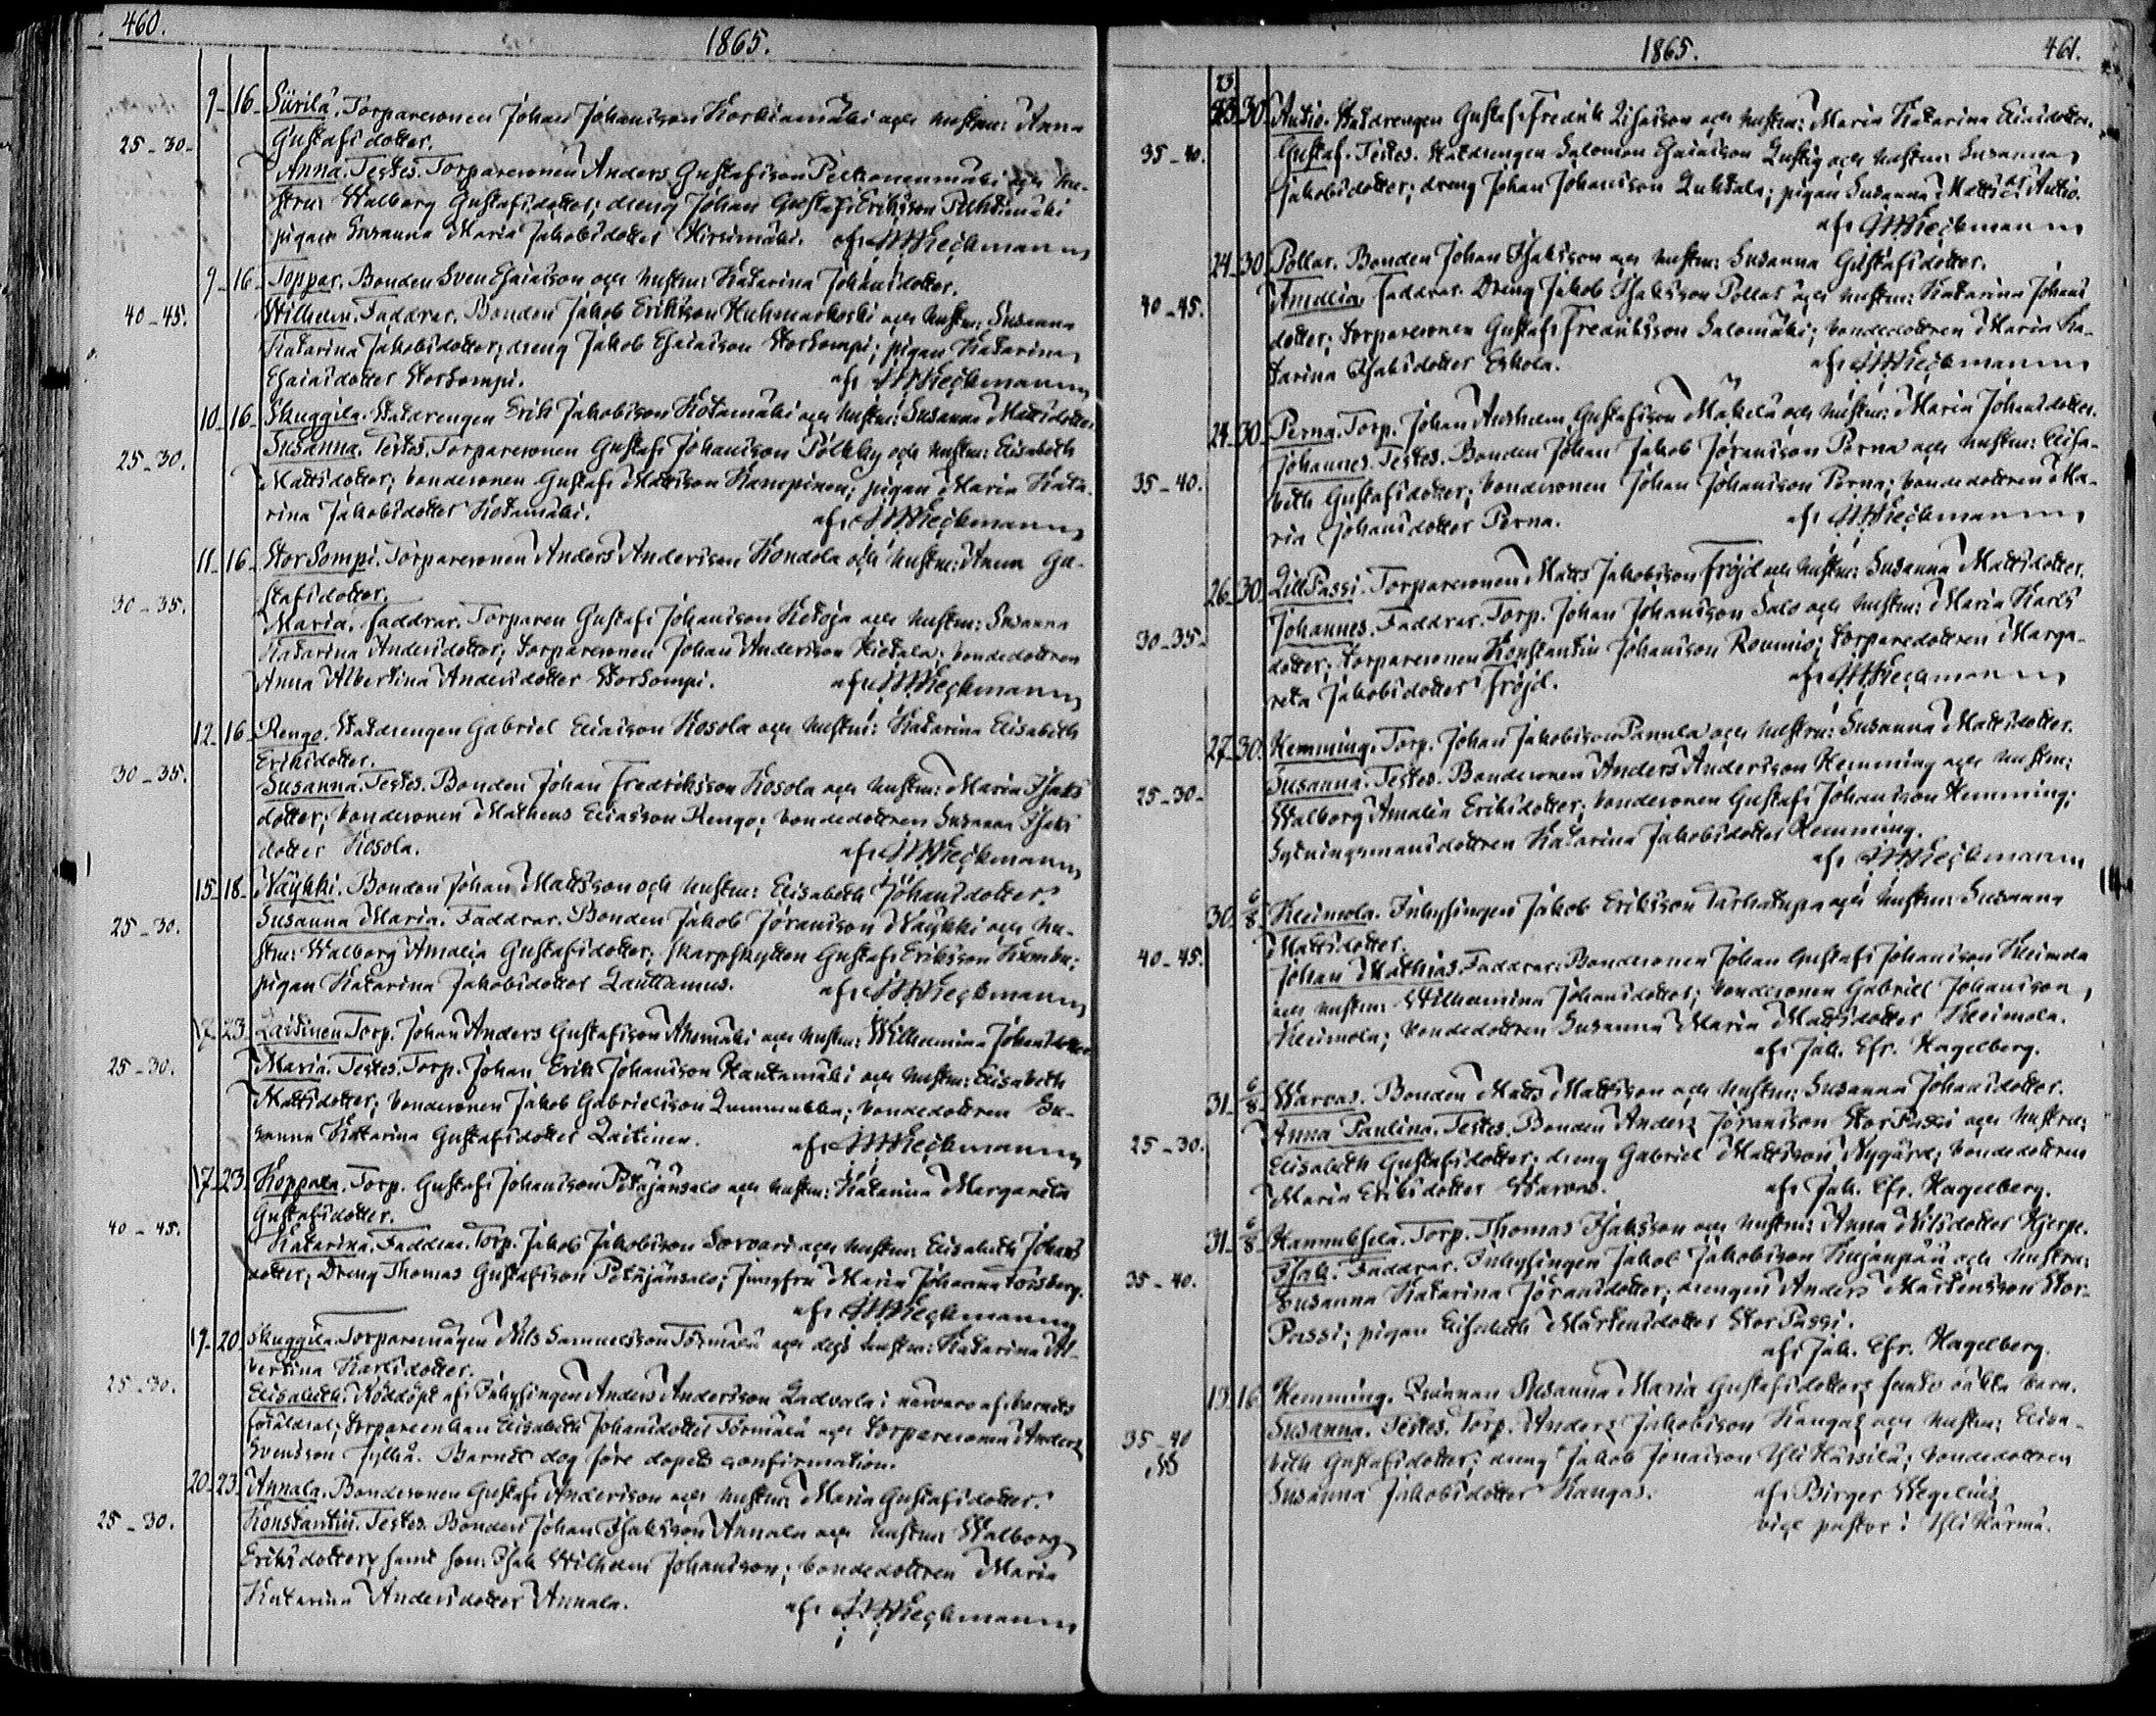 460.
1865.
9 16 Siirilä. Torparesonen Johan Johansson Korkiamäki och hustru: Anna
25-30. Gustafsdotter.
Anna. Testes. Torparesonen Anders Gustafsson Pelkonenmäki och hu-
stru: Walborg Gustafsdotter; dreng Johan Gustaf Eriksson Puhtimäki
pigan Susanna Maria Jakobsdotter Hirsimäki. af J. M. Kieckmann
9 16 Toppar. Bonden Sven Esaiasson och hustru: Katarina Johansdotter.
40-45. Wilhelm. Faddrar. Bonden Jakob Eriksson Kuhmaskoski och hustru: Susanna
Katarina Jakobsdotter; dreng Jakob Esaiasson Storsompi; pigan Katarina
Esaiasdotter Storsompi. af J. M. Kieckmann
10 16 Skuggila. Statdrengen Erik Jakobsson Kotamäki och hustru: Susanna Mattsdotter
Susanna. Testes. Torparesonen Gustaf Johansson Pölkky och hustru: Elisabeth
25-30. Mattsdotter; bondesonen Gustaf Mattsson Kanspinen; pigan Maria Kata-
rina Jakobsdotter Kotamäki. af J. M. Kieckmann
11 16 Storsompi. Torparesonen Anders Andersson Kondola och hustru: Anna Gu-
stafsdotter.
30-35. Maria. Faddrar. Torparen Gustaf Johansson Ketoja och hustru: Susanna
Katarina Andersdotter; torparesonen Johan Andersson Hietala; bondedottren
Anna Albertina Andersdotter Storsompi. af J. M. Kieckmann
12 16 Rengo. Statdrengen Gabriel Eliasson Kosola och hustru: Katarina Elisabeth
Eriksdotter.
30-35. Susanna. Testes. Bonden Johan Fredriksson Kosola och hustru: Maria Isaks
dotter; bondesonen Matheus Eliasson Rengo; bondedottren Susanna Isaks
dotter Kosola. af J. M. Kieckmann
15 18 Näykki. Bonden Johan Mattsson och hustru: Elisabeth Johansdotter.
25-30. Susanna Maria. Faddrar. Bonden Jakob Jöransson Näykki och hu-
stru: Walborg Amalia Gustafsdotter; skarpskytten Gustaf Eriksson Kumbu;
pigan Katarina Jakobsdotter Lauttamus. af J. M. Kieckmann
17 23 Laitinen. Torp. Johan Anders Gustafsson Ahomäki och hustru: Wilhelmina Johansdotter
25-30. Maria. Testes. Torp. Johan Erik Johansson Rautamäki och hustru: Elisabeth
Mattsdotter; bondesonen Jakob Gabrielsson Lummukka; bondedottren Su-
sanna Katarina Gustafsdotter Laitinen. af J. M. Kieckmann
17 23 Koppala. Torp. Gustaf Johansson Petäjänsalo och hustru: Katarina Margareta
Gustafsdotter.
40-45. Katarina. Faddrar. Torp. Jakob Jakobsson Sorvari och hustru: Elisabeth Johans
dotter; Dreng Thomas Gustafsson Petäjänsalo; Jungfru Maria Johanna Forsberg.
af J. M. Kieckmann
19 20 Skuggila. Torparemågen Nils Samuelsson Törmälä och dess hustru: Katarina Al-
bertina Karlsdotter.
25-30. Elisabeth. Nöddöpt af Inhysingen Anders Andersson Ladvala i närvaro af barnets
föräldrar; torpareenkan Elisabeth Johansdotter Törmälä och torparesonen Anders
Svensson Jylhä. Barnet dog före dopets confirmation.
20 23 Annala. Bondesonen Gustaf Andersson och hustru: Maria Gustafsdotter.
25-30. Konstantin. Testes. Bonden Johan Isaksson Annala och hustru: Walborg
Eriksdotter samt son: Isak Wilhelm Johansson; bondedottren Maria
Katarina Andersdotter Annala. af J. M. Kieckmann
1865.
461.
23
30 Autio. Statdrengen Gustaf Fredrik Lisasson och hustru: Maria Katarina Eliasdotter.
35-40. Gustaf. Testes. Statdrengen Salomon Esaiasson Lustig och hustru: Susanna
Jakobsdotter; dreng Johan Johansson Luhtala; pigan Susanna Mattsdr Autio.
af J. M. Kieckmann
24 30 Pollar. Bonden Johan Isaksson och hustru: Susanna Gustafsdotter.
40-45. Amalia. Faddrar. Dreng Jakob Isaksson Pollar och hustru: Katarina Johans
dotter; torparesonen Gustaf Fredriksson Salomäki; bondedottren Maria Ka-
tarina Isaksdotter Eskola. af J. M. Kieckmann
24 30 Perna. Torp. Johan Anshelm Gustafsson Mäkelä och hustru: Maria Johansdotter.
Johannes. Testes. Bonden Johan Jakob Jöransson Perna och hustru: Elisa-
35-40. beth Gustafsdotter; bondesonen Johan Johansson Perna; bondedottren Ma-
ria Johansdotter Perna. af J. M. Kieckmann
26 30 LillPassi. Torparesonen Matts Jakobsson Fröjd och hustru: Susanna Mattsdotter.
Johannes. Faddrar. Torp. Johan Johansson Salo och hustru: Maria Karls
30-35 dotter; torparesonen Konstantin Johansson Roumio; torparedottren Marga-
reta Jakobsdotter Fröjd. af J. M. Kieckmann
27 30 Hemming. Torp. Johan Jakobsson Pannula och hustru: Susanna Mattsdotter.
25-30 Susanna. Testes. Bondesonen Anders Andersson Hemming och hustru:
Walborg Amalia Eriksdotter; bondesonen Gustaf Johansson Hemming;
Sytningsmansdottren Katarina Jakobsdotter Hemming.
af J. M. Kieckmann
30 6/8 Kleimola. Inhysingen Jakob Eriksson Tarhatupa och hustru: Susanna
Mattsdotter.
40-45. Johan Mathias. Faddrar. Bondesonen Johan Gustaf Johansson Kleimola
och hustru: Wilhelmina Johansdotter; bondesonen Gabriel Johansson
Kleimola; bondedottren Susanna Maria Mattsdotter Kleimola.
af Joh. Efr. Hagelberg.
31 6/8 Warvas. Bonden Matts Mattsson och hustru: Susanna Johansdotter.
25-30. Anna Paulina. Testes. Bonden Anders Jöransson StorPassi och hustru:
Elisabeth Gustafsdotter; dreng Gabriel Mattsson Nygård; bondedottren
Maria Eriksdotter Warvas. af Joh. Efr. Hagelberg.
31 6/8 Kannuksela. Torp. Thomas Isaksson och hustru: Anna Nilsdotter Hjerpe.
35-40. Isak. Faddrar. Inhysingen Jakob Jakobsson Kujanpää och hustru:
Susanna Katarina Jöransdotter; drengen Anders Mårtensson Stor-
Passi; pigan Elisabeth Mårtensdotter StorPassi.
af Joh. Efr. Hagelberg.
13 16 Hemming. Qvinnan Susanna Maria Gustafsdotters oäkta barn.
Susanna. Testes. Torp. Anders Jakobsson Kangas och hustru: Elisa-
35-40 beth Gustafsdotter; dreng Jakob Jonasson YliHärsilä; bondedottren
Susanna Jakobsdotter Kangas. af Birger Wegelius
vice pastor i YliHärmä.